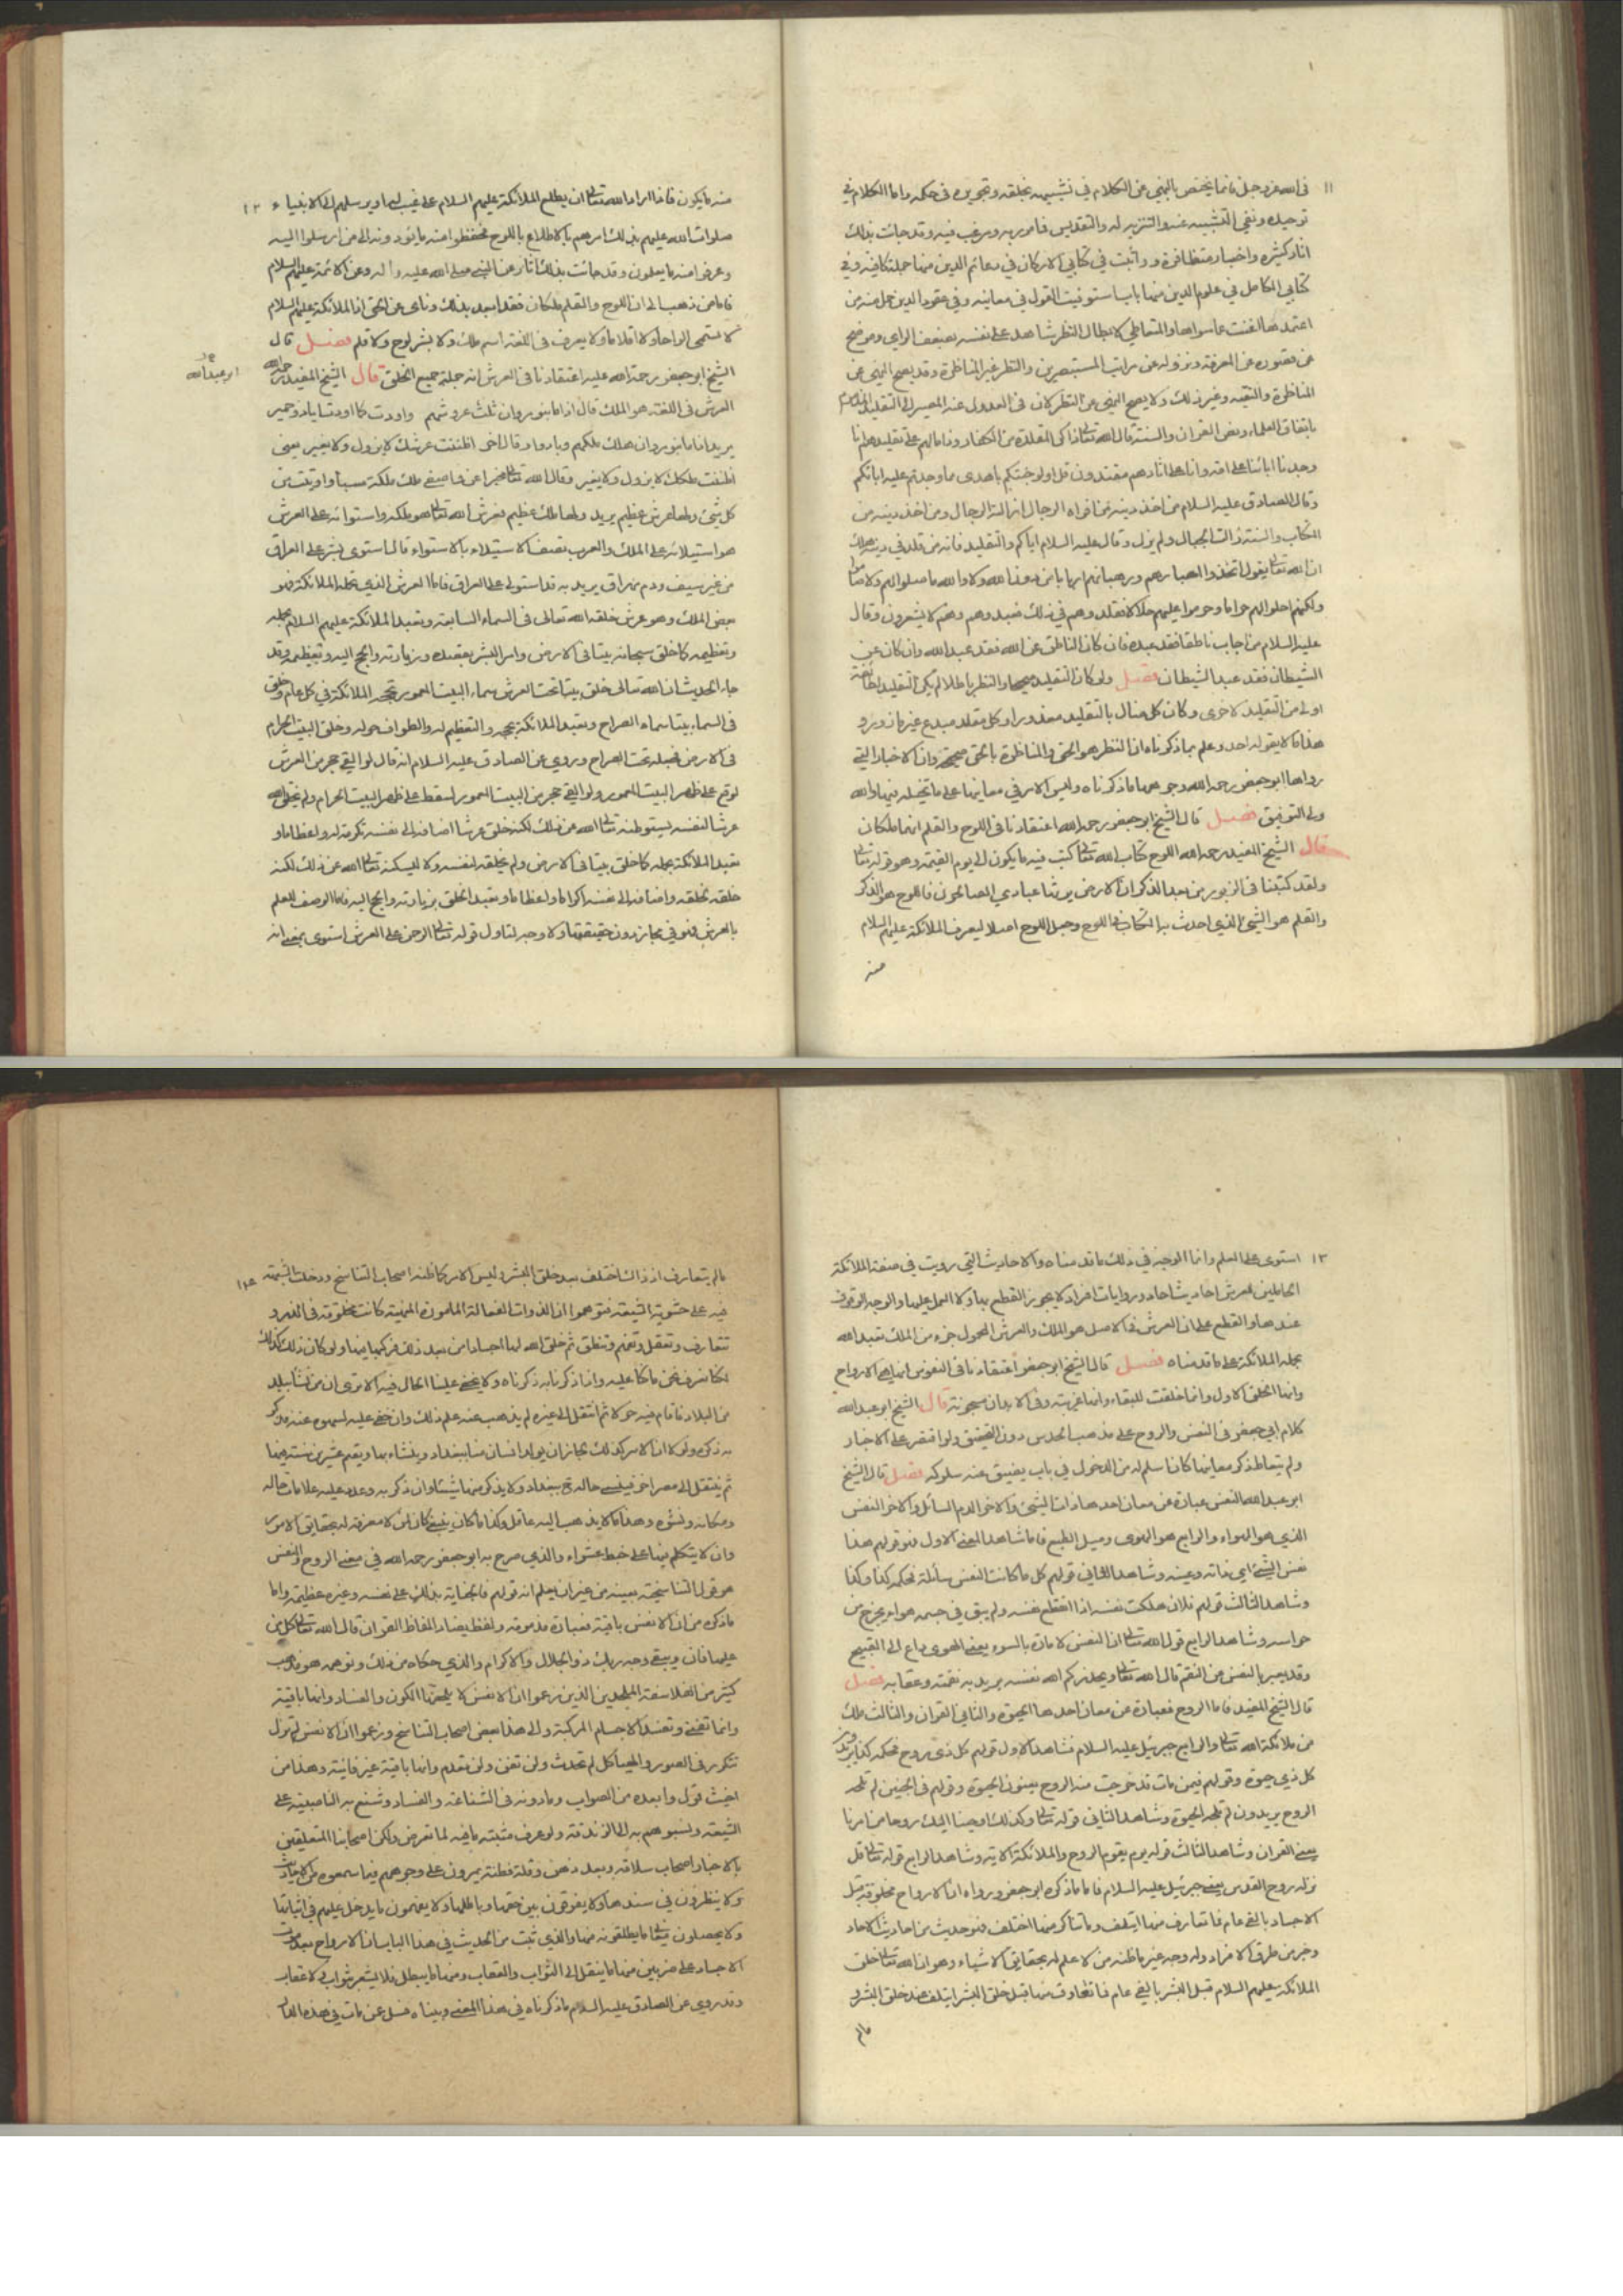 ١١ في الله عز وجل فانما يختص بالنهي عن الكلام في تشبيهه بخلقه وتجويره في حكمه واما الكلام في
توحيده ونفي التشبيه عنه والتنزيه له والتقديس فمامور به ومرغب فيه وقد جائت بذلك
اثار كثيرة واخبار متظافرة ورواثبت في كتابي الاركان في دعائم الدين منها جملة كافية وفي
كتابي الكامل في علوم الدين منها بابا استوفيت القول في معانيه وفي عقود الدين جملة منه من
اعتمدها اغنت عما سواها والمتعاطي لابطال النظر شاهد على نفسه بضعف الراي وموضح
عن قصوره عن المعرفة ونزوله عن مراتب المستبصرين والنظر غير المناظرة وقد يصح النهي عن
المناظرة للتقية وغير ذلك ولا يصح النهي عن النظر لان في العدول عنه المصير الى التقليد المذموم
باتفاق العلماء ونص القران والسنة قال الله تعالى ذاكر المقلدة من الكفار وذامالهم على تقليدهم انا
وجدنا ابائنا على امة وانا على اثارهم مقتدون قل اولو جئتكم باهدى مما وجدتم عليه اباءكم
وقال الصادق عليه السلام من اخذ دينه من افواه الرجال ازالته الرجال ومن اخذ دينه من
الكتاب والسنة زالت الجبال ولم يزل وقال عليه السلام اياكم والتقليد فانه من قلد في دينه هلك
ان الله تعالى يقول اتخذوا احبارهم ورهبانهم اربابا من دون الله ولا والله ما صلوا لهم ولا صاموا
ولكنهم احلوا لهم حراما وحرموا عليهم حلالا فقلدوهم في ذلك فعبدوهم وهم لا يشعرون وقال
عليه السلام من اجاب ناطقا فقد عبده فان كان الناطق عن الله فقد عبد الله وان كان عن
الشيطان فقد عبد الشيطان فصل ولو كان التقليد صحيحا والنظر باطلا لم يكن التقليد لطائفة
اولى من التقليد لاخرى وكان كل ضال بالتقليد معذورا وكل مقلد مبدع غير مازور
هذا ما لا يقوله احد وعلم بما ذكرناه ان النظر هو الحق والمناظرة بالحق صحيحة وان الاخبار التي
رواها ابو جعفر رحمه الله وجوهها ما ذكرناه وليس الامر في معانيها على ما تخيله فيها والله
ولي التوفيق فصل قال الشيخ ابو جعفر رحمه الله اعتقادنا في اللوح والقلم انهما ملكان
قال الشيخ المفيد رحمه الله اللوح كتاب الله تعالى كتب فيه ما يكون الى يوم القيمة وهو قوله تعالى
ولقد كتبنا في الزبور من بعد الذكر ان الارض يرثها عبادي الصالحون فاللوح هو الذكر
والقلم هو الشيء الذي احدث به الكتابة في اللوح وجعل اللوح اصلا ليعرف الملائكة عليهم السلام
منه
منه ما يكون فاذا اراد الله تعالى ان يطلع الملائكة عليهم السلام على غيب له او يرسلهم الى الانبياء ١٢
صلوات الله عليهم بذلك امرهم بالاطلاع باللوح فحفظوا منه ما يؤدونه الى من ارسلوا اليه
وعرفوا منه ما يعملون وقد جائت بذلك اثار عن النبي صلى الله عليه واله وعن الائمة عليهم السلام
فاما من ذهب الى ان اللوح والقلم ملكان فقد ابعد بذلك وناى عن الحق اذ الملائكة عليهم السلام
لا تسمى الواحا ولا اقلاما ولا يعرف في اللغة اسم ملك ولا بشر لوح ولا قلم فصل قال
الشيخ ابو جعفر رحمة الله عليه اعتقادنا في العرش انه جملة جميع الخلق قال الشيخ المفيد رحمه الله
ابو عبد الله
العرش في اللغة هو الملك قال اذا ما بنو مروان ثلت عروشهم واودت كما اودت اياد وحمير
يريد اذا ما بنو مروان هلك ملكهم وبادوا وقال اخر اظننت عرشك لا يزول ولا يغير يعني
اظننت ملكك لا يزول ولا يغير وقال الله تعالى مخبرا عن واصفي ملك ملكة سبا واوتيت من
كل شيء ولها عرش عظيم يريد ولها ملك عظيم فعرش الله تعالى هو ملكه واستوائه على العرش
هو استيلائه على الملك والعرب تصف الاستيلاء بالاستواء قال استوى بشر على العراق
من غير سيف ودم مهراق يريد به قد استولى على العراق فاما العرش الذي تحمله الملائكة فهو
بعض الملك وهو عرش خلقه الله تعالى في السماء السابعة وتعبد الملائكة عليهم السلام بحمله
وتعظيمه كما خلق سبحانه بيتا في الارض وامر البشر بقصده وزيارته والحج اليه وتعظيمه وقد
جاء الحديث ان الله تعالى خلق بيتا تحت العرش سماه البيت المعمور تحجه الملائكة في كل عام وخلق
في السماء بيتا سماه الصراح وتعبد الملائكة بحجه والتعظيم له والطواف حوله وخلق البيت الحرام
في الارض فجعله تحت الصراح وروي عن الصادق عليه السلام انه قال لو القي حجر من العرش
لوقع على ظهر البيت المعمور ولو القي حجر من البيت المعمور لسقط على ظهر البيت الحرام ولم يخلق الله
عرشا لنفسه يستوطنه تعالى الله عن ذلك لكنه خلق عرشا اضافه الى نفسه تكرمة له واعظاما و
تعبد الملائكة بحمله كما خلق بيتا في الارض ولم يخلقه لنفسه ولا ليسكنه تعالى الله عن ذلك لكنه
خلقه لخلقه واضافه الى نفسه اكراما واعظاما وتعبد الخلق بزيارته والحج اليه فاما الوصف للعلم
بالعرش فهو في مجاز دون حقيقتها ولا وجه لتاول قوله تعالى الرحمن على العرش استوى بمعنى انه
١٣ استوى على العلم وانما الوجه في ذلك ما قدمناه والاحاديث التي رويت في صفة الملائكة
الحاملين لعرش احاديث احاد وروايات افراد لا يجوز القطع بها ولا العمل عليها والوجه الوقوف
عندها والقطع على ان العرش في الاصل هو الملك والعرش المحمول جزء من الملك تعبد الله
بحمله الملائكة على ما قدمناه فصل قال الشيخ ابو جعفر اعتقادنا في النفوس انها هي الارواح
وانها الخلق الاول وانها خلقت للبقاء وانها غريبة وفي الابدان مسجونة قال الشيخ ابو عبد الله
كلام ابي جعفر في النفس والروح على مذهب الحدس دون التحقيق ولو اقتصر على الاخبار
ولم يتعاط ذكر معانيها كان اسلم له من الدخول في باب يضيق عنه سلوكه فصل قال الشيخ
ابو عبد الله النفس عبارة عن معان احدها ذات الشيء والاخر الدم السائل والاخر النفس
الذي هو الهواء والرابع هو الهوى وميل الطبع فاما شاهد المعنى الاول فهو قولهم هذا
نفس الشيء اي ذاته وعينه وشاهد الثاني قولهم كل ما كانت النفس سائلة فحكمه كذا وكذا
وشاهد الثالث قولهم فلان هلكت نفسه اذا انقطع نفسه ولم يبق في جسمه هواء يخرج من
حواسه وشاهد الرابع قول الله تعالى ان النفس لامارة بالسوء يعني الهوى داع الى القبيح
وقد يعبر بالنفس عن النقم قال الله تعالى ويحذركم الله نفسه يريد به نقمته وعقابه فصل
قال الشيخ المفيد فاما الروح فعبارة عن معان احدها الحيوة والثاني القران والثالث ملك
من ملائكة الله تعالى والرابع جبرئيل عليه السلام فشاهد الاول قولهم كل ذي روح فحكمه كذا يريدون
كل ذي حيوة وقولهم فيمن مات قد خرجت منه الروح يعنون الحيوة وقولهم في الجنين لم تلجه
الروح يريدون لم تلجه الحيوة وشاهد الثاني قوله تعالى وكذلك اوحينا اليك روحا من امرنا
يعني القران وشاهد الثالث قوله يوم يقوم الروح والملائكة الاية وشاهد الرابع قوله تعالى قل
نزله روح القدس يعني جبرئيل عليه السلام فاما ما ذكره ابو جعفر ورواه ان الارواح مخلوقة قبل
الاجساد بالفي عام فما تعارف منها ائتلف وما تناكر منها اختلف فهو حديث من احاديث الاحاد
وخبر من طرق الافراد وله وجه غير ما ظنه من لا علم له بحقايق الاشياء وهو ان الله تعالى خلق
الملائكة عليهم السلام قبل البشر بالفي عام فما تعارف منها قبل خلق البشر ائتلف عند خلق البشر و
مالم
مالم يتعارف اذ ذاك اختلف بعد خلق البشر وليس الامر كما ظنه اصحاب التناسخ ودخلت الشبهة ١٤
فيه على حشوية الشيعة فتوهموا ان الذوات الفعالة المامورة المنهية كانت مخلوقة في الذر و
تتعارف وتعقل وتفهم وتنطق ثم خلق الله لها اجسادا من بعد ذلك فركبها فيها ولو كان ذلك كذلك
لكنا نعرف نحن ما كنا عليه واذا ذكرنا به ذكرناه ولا يخفى علينا الحال فيه الا ترى ان من نشا ببلد
من البلاد فاقام فيه حولا ثم انتقل الى غيره لم يذهب عنه علم ذلك وان خفي عليه لسهوه عنه فذكر
به ذكره ولولا ان الامر كذلك لجاز ان يولد انسان منا ببغداد وينشاء بها ويقيم عشرين سنة فيها
ثم ينتقل الى مصر اخر فينسى حاله ببغداد ولا يذكر منها شيئا وان ذكر به وعدد عليه علامات حاله
ومكانه ونشوه وهذا ما لا يذهب اليه عاقل وكذا ما كان ينبغي كان لمن لا معرفة له بحقايق الامور
وان لا يتكلم فيها على خبط عشواء والذي صرح به ابو جعفر رحمه الله في معنى الروح والنفس
هو قول التناسخية بعينه من غير ان يعلم انه قولهم فالجناية بذلك على نفسه وغيره عظيمة واما
ما ذكره من ان الانفس باقية فعبارة مذمومة ولفظ يضاد الفاظ القران قال الله تعالى كل من
عليها فان ويبقى وجه ربك ذو الجلال والاكرام والذي حكاه من ذلك وتوهمه هو مذهب
كثير من الفلاسفة الملحدين الذين زعموا ان الانفس لا يلحقها الكون والفساد وانها باقية
وانما تفنى وتفسد الاجسام المركبة والى هذا بعض اصحاب التناسخ وزعموا ان الانفس لم تزل
تتكرر في الصور والهياكل لم تحدث ولن تفنى ولن تعدم وانها باقية غير فانية وهذا من
اخبث قول وابعده من الصواب وما دونه في الشناعة والفساد وشنع به الناصبة على
الشيعة ونسبوهم به الى الزندقة ولو عرف مثبته ما فيه لما تعرض ولكن اصحابنا المتعلقين
بالاخبار اصحاب سلامة وبعد ذهن وقلة فطنة يمرون على وجوههم فيما سمعوه من الاحاديث
ولا ينظرون في سندها ولا يفرقون بين حقها وباطلها ولا يفهمون ما يدخل عليهم في اثباتها
ولا يحصلون معاني ما يطلقونه منها والذي ثبت من الحديث في هذا الباب ان الارواح بعد موت
الاجساد على ضربين منها ما ينتقل الى الثواب والعقاب ومنها ما يبطل فلا يشعر بثواب ولا عقاب
وقد روي عن الصادق عليه السلام ما ذكرناه في هذا المعنى وبيناه فسئل عن مات في هذه الدار